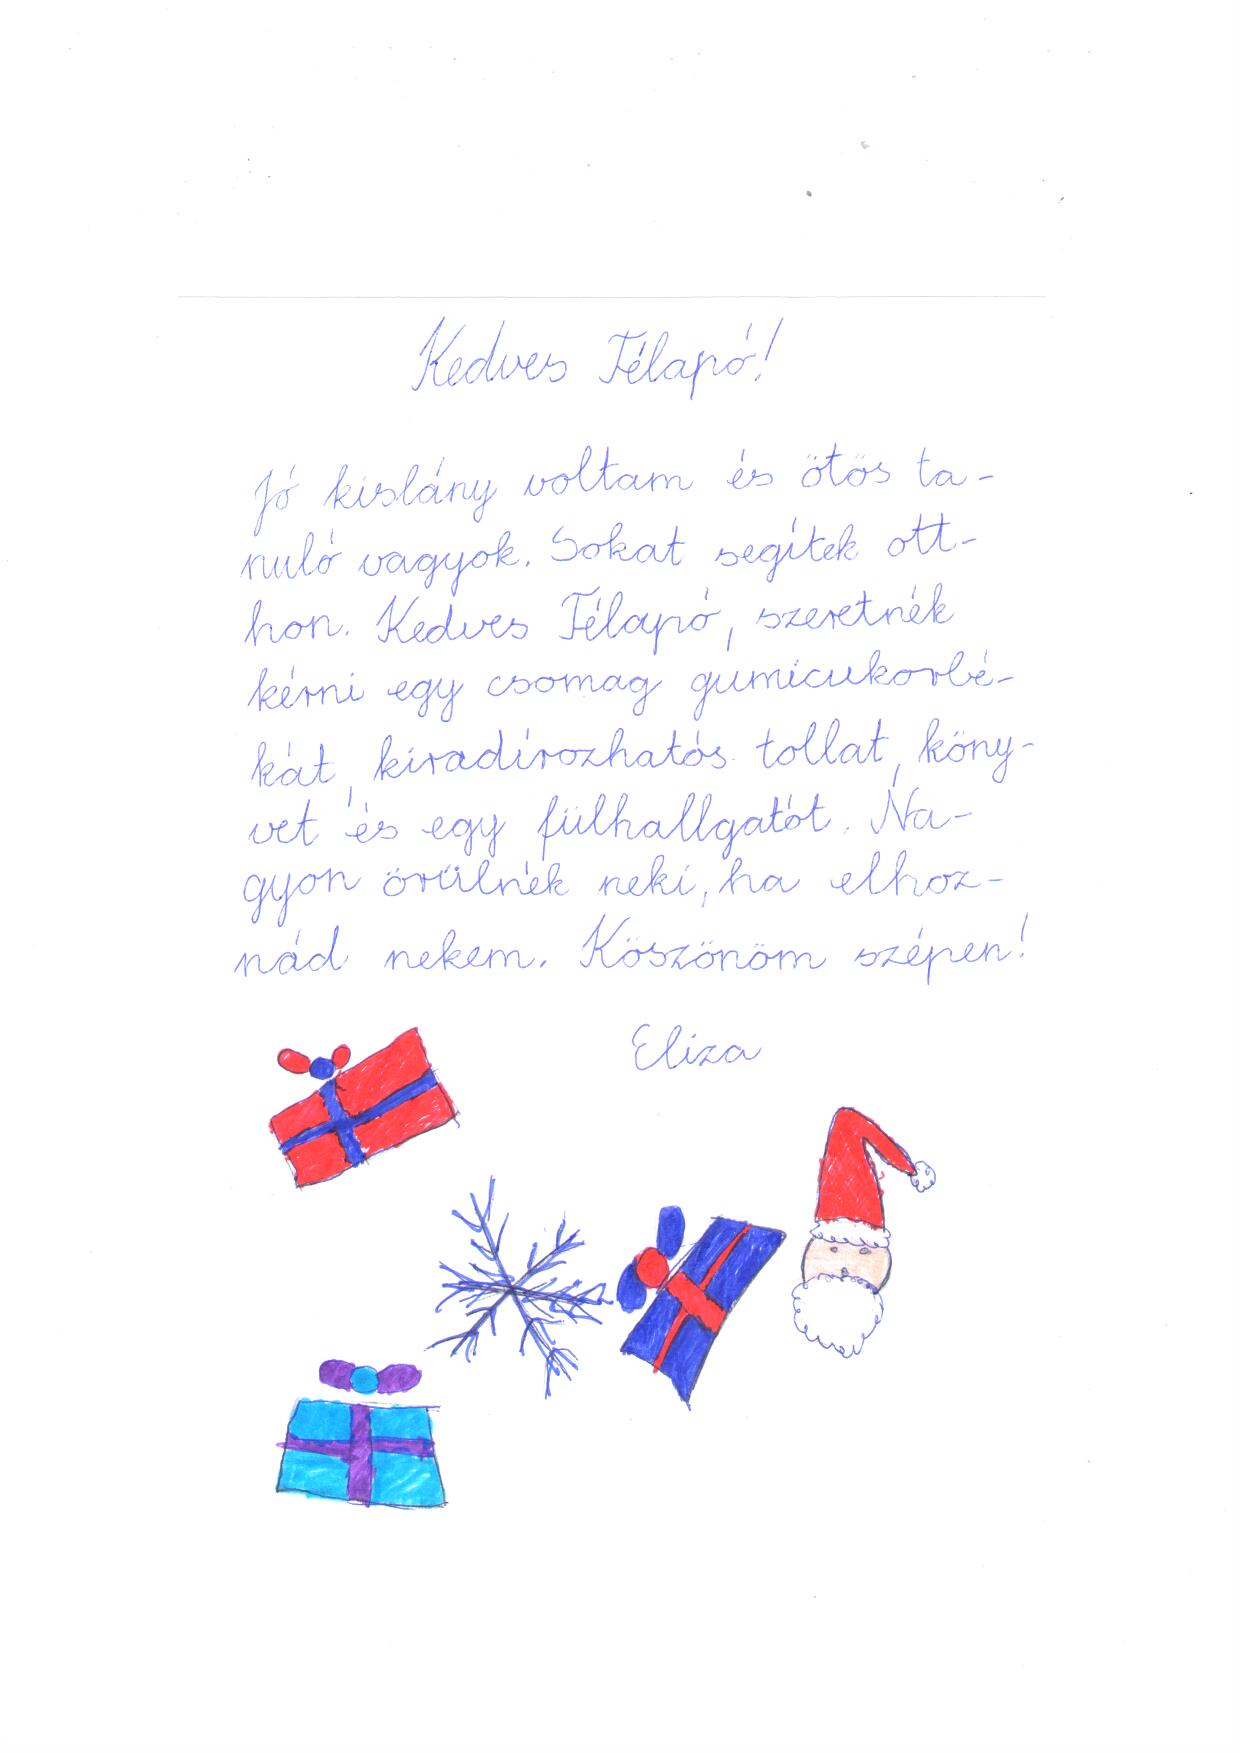 Kedves Télapó!
Jó kislány voltam és ötös ta-
nuló vagyok. Sokat segítek ott-
hon. Kedves Télapó, szeretnék
kérni egy csomag gumicukorbé-
kát, kiradírozhatós tollat, köny-
vet és egy fülhallgatót. Na-
gyon örülnék neki, ha elhoz-
nád nekem. Köszönöm szépen!
Eliza